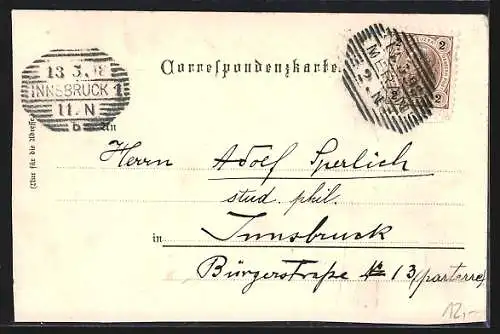 Correspondenzkarte.
13.5.98
INNSBRUCK 1
11.N
6
MERAN
2
2
(Nur für die Adresse)
An
Herrn Adolf Sperlich
stud. phil.
in Innsbruck
Bürgerstraße № 13 (parterre)
12,-